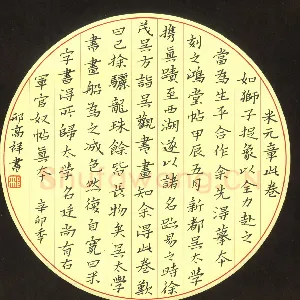 米元章此卷
如獅子捉象以全力赴之
當為生平合作余先得摹本
刻之鴻堂帖甲辰五月新都吳太學
携真蹟至西湖遂以諸名跡易之時徐
茂吳方詣吳觀書畫知余得此卷歎
曰已探驪龍珠餘皆長物矣吳太學
書畫船為之減色然復自寬曰米
字書得所歸太學名廷尚有右
軍官奴帖真本 辛卯季
邱高祥書